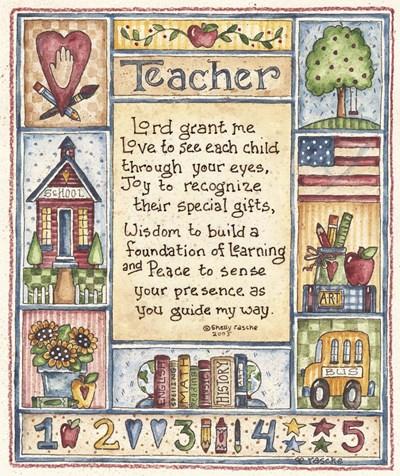 Teacher
Lord grant me
Love to see each child
through your eyes,
Joy to recognize
their special gifts,
Wisdom to build a
foundation of learning
and Peace to sense
your presence as
you guide my way.
©Shelly Rasche
2003
SCHOOL
ART
BUS
ENGLISH
SPELLING
MATH
HISTORY
1 2 3 4 5
Rasche